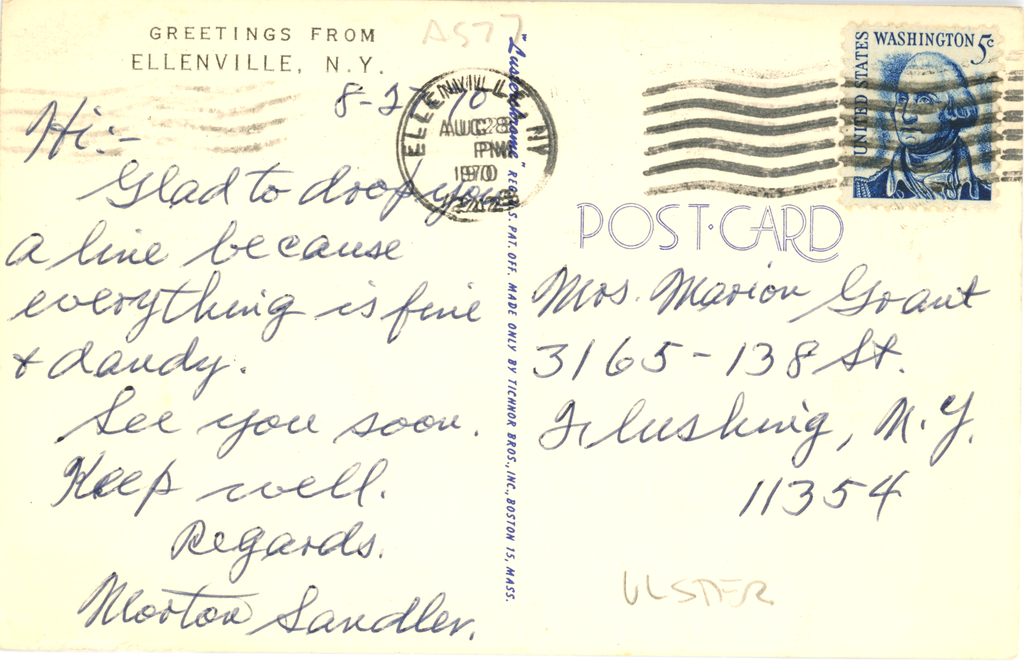 GREETINGS FROM
ELLENVILLE, N.Y.
A577
8-27-70
Hi:-
Glad to drop you
a line because
everything is fine
& dandy.
See you soon.
Keep well.
Regards.
Morton Sandler.
ELLENVILLE NY
AUG 28
PM
1970
"Lusterchrome" REG. U.S. PAT. OFF. MADE ONLY BY TICHNOR BROS., INC., BOSTON 15, MASS.
UNITED STATES
WASHINGTON 5c
POST·CARD
Mrs. Marion Grant
3165-138 St.
Flushing, N.Y.
11354
ULSTER